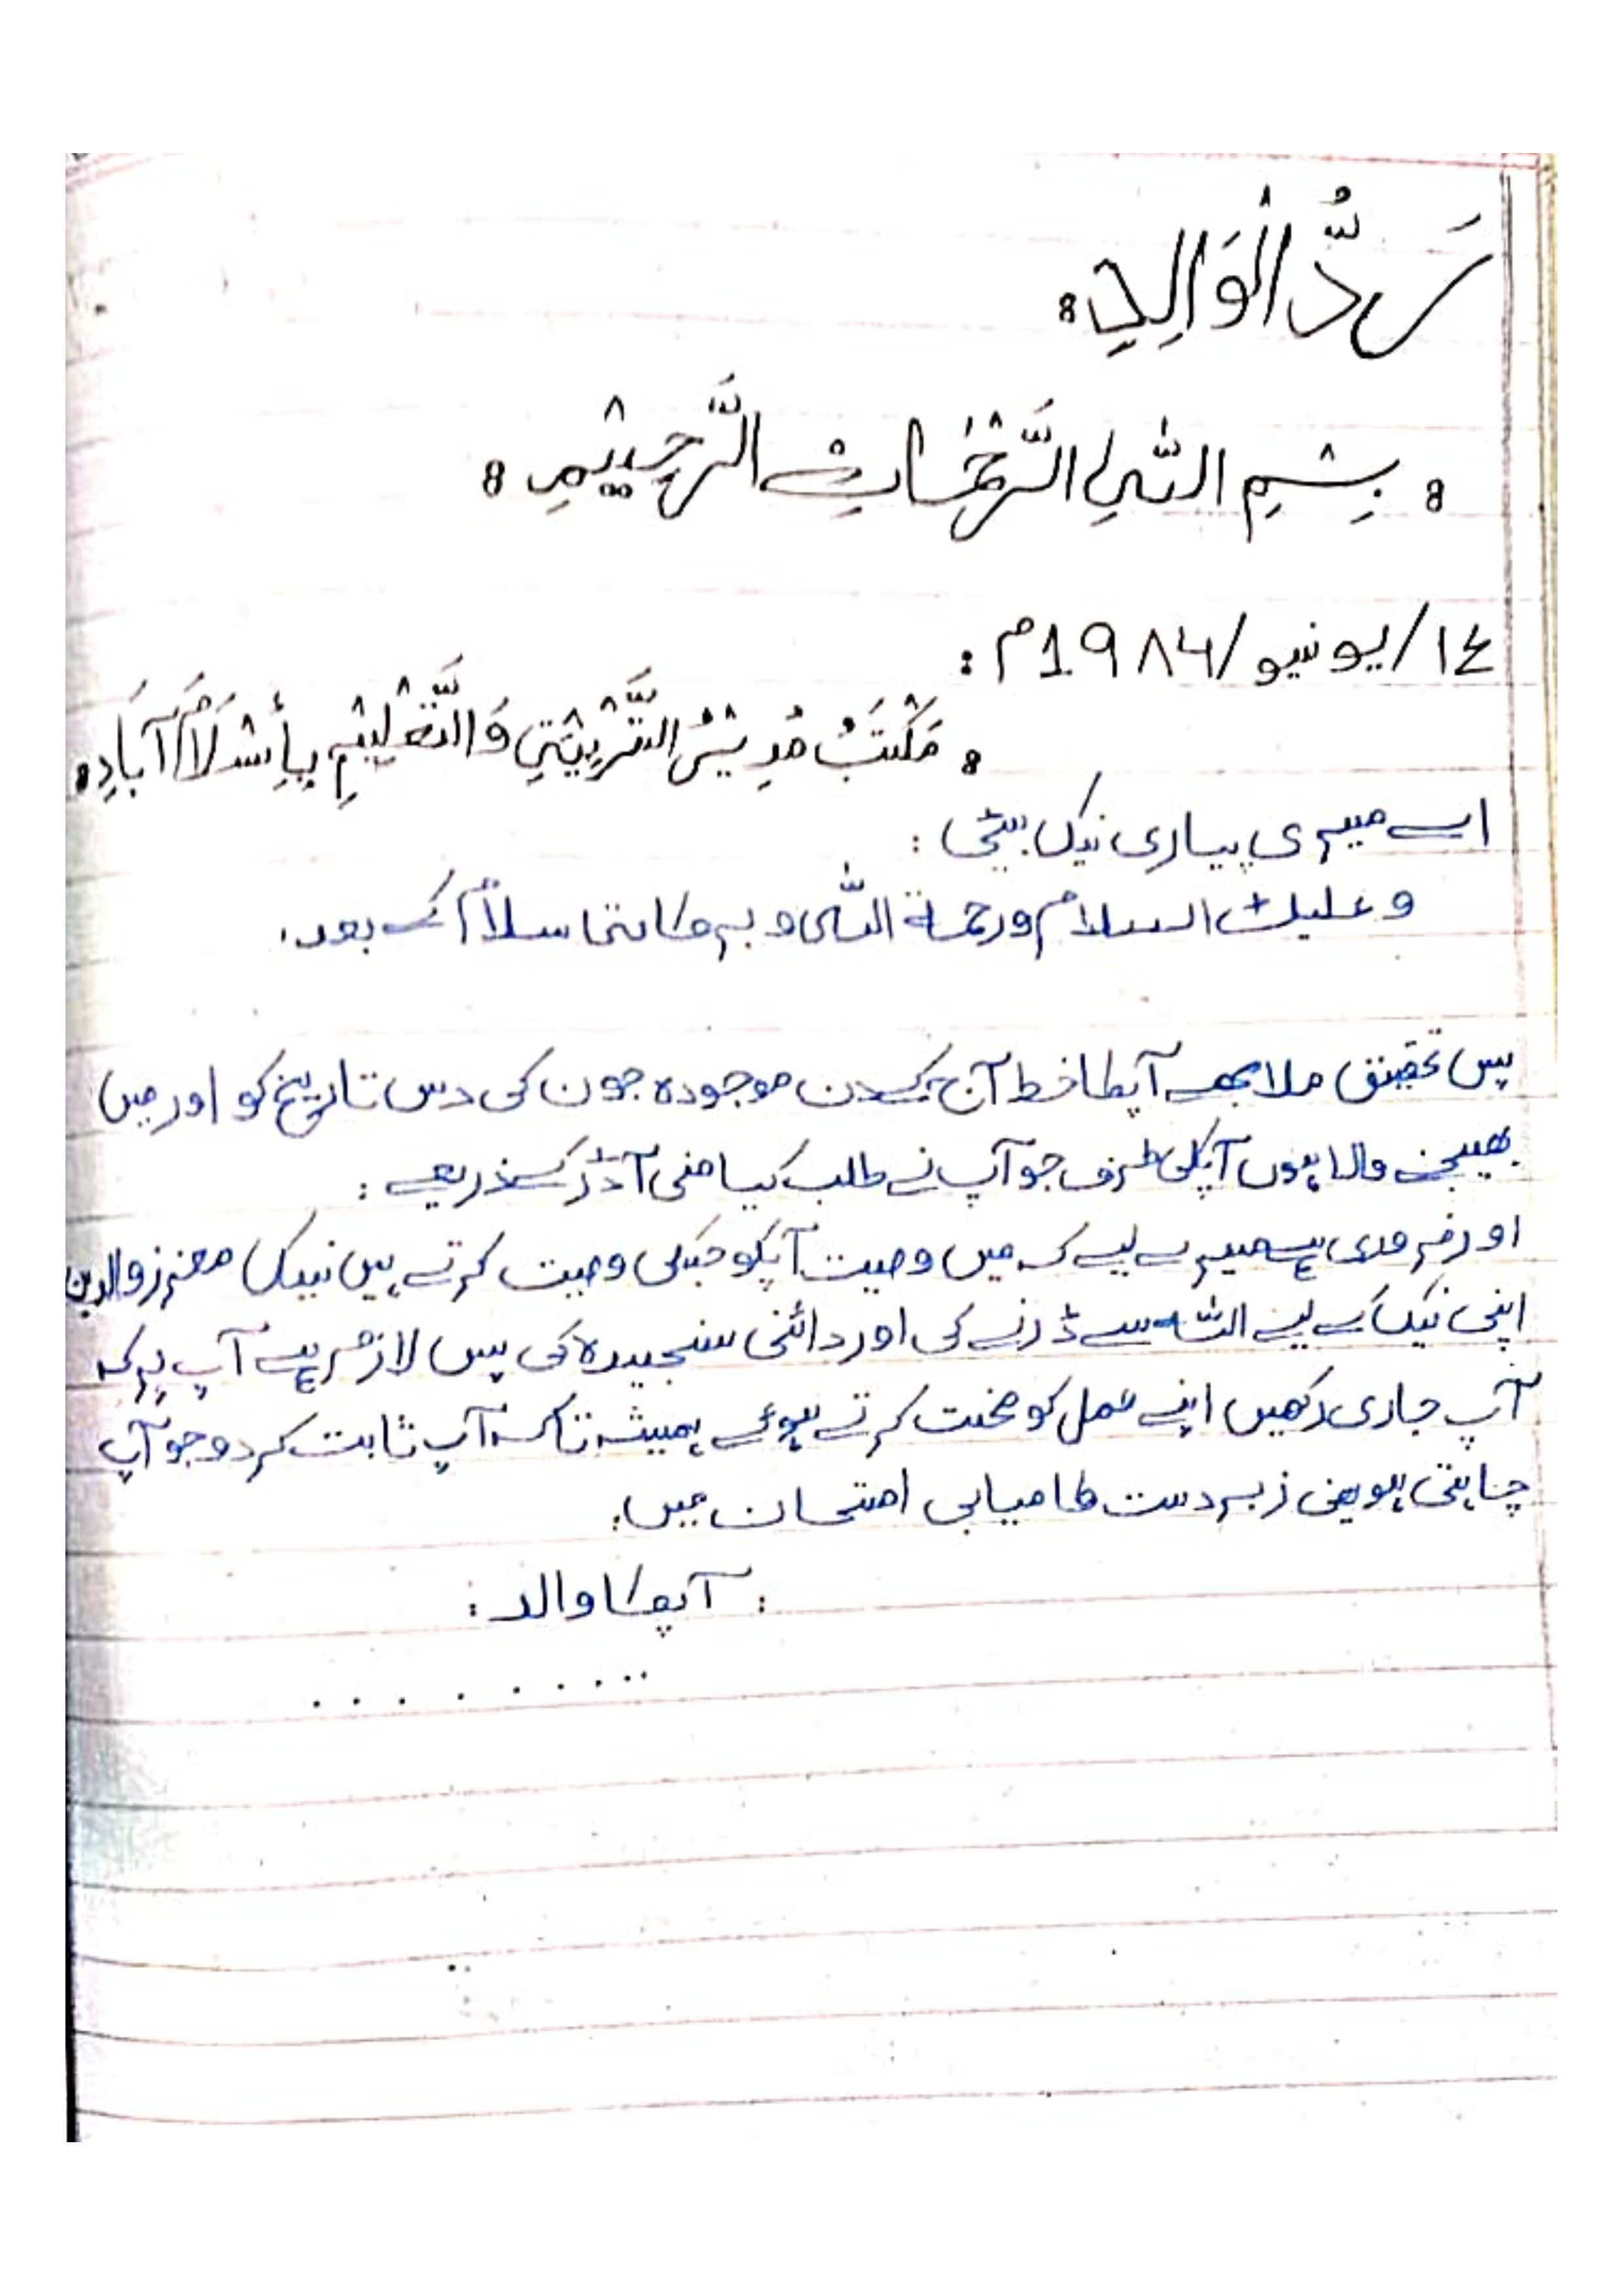 رَدُّ الْوَالِدِ
بِسْمِ اللّٰهِ الرَّحْمٰنِ الرَّحِيْمِ
١٤/يونيو/١٩٨٤م :
مَكْتَبُ مُدِيْرُ التَّرْبِيْتِي وَالتَّعْلِيْمِ بِأِسْلَامْ آبَادِ
اے میری پیاری نیک بیٹی :
وعلیک السلام ورحمة اللہ و برکاتہ سلام کے بعد۔
پس تحقیق ملا مجھے آپکا خط آج کے دن موجودہ جون کی دس تاریخ کو اور میں
بھیجنے والا ہوں آپکی طرف جو آپ نے طلب کیا منی آڈر کے ذریعے :
اور ضروری ہے میرے لیے کہ میں وصیت آپکو جسکی وصیت کرتے ہیں نیک معزز والدین
اپنی نیک کے لیے اللہ سے ڈرنے کی اور دائمی سنجیدہ کی پس لازم ہے آپ پر کہ
آپ جاری رکھیں اپنے عمل کو محنت کرتے ہوئے ہمیشہ تاکہ آپ ثابت کردو جو آپ
چاہتی ہو یعنی زبردست کامیابی امتحان میں۔
: آپکا والد :
. . . . . . . . .